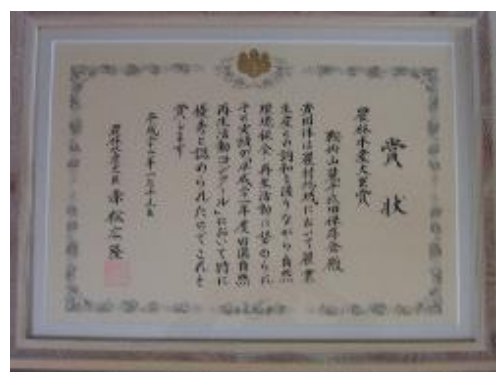 賞状
農林水産大臣賞
鞍掛山麓千枚田保存会殿
貴団体は農村地域において農業
生産との調和を図りながら自然
環境保全・再生活動に努められ
その実績が平成二一年度田園自然
再生活動コンクールにおいて特に
優秀と認められたのでこれを
賞します
農林水産大臣 赤松広隆